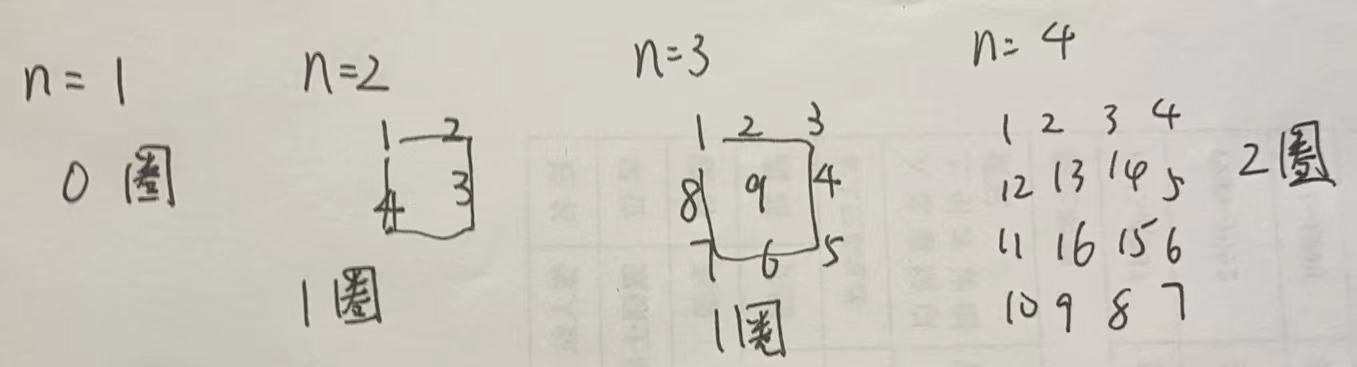 n = 1
0 圈
n=2
1 2
4 3
1 圈
n=3
1 2 3
8 9 4
7 6 5
1 圈
n= 4
1 2 3 4
12 13 14 5
11 16 15 6
10 9 8 7
2 圈